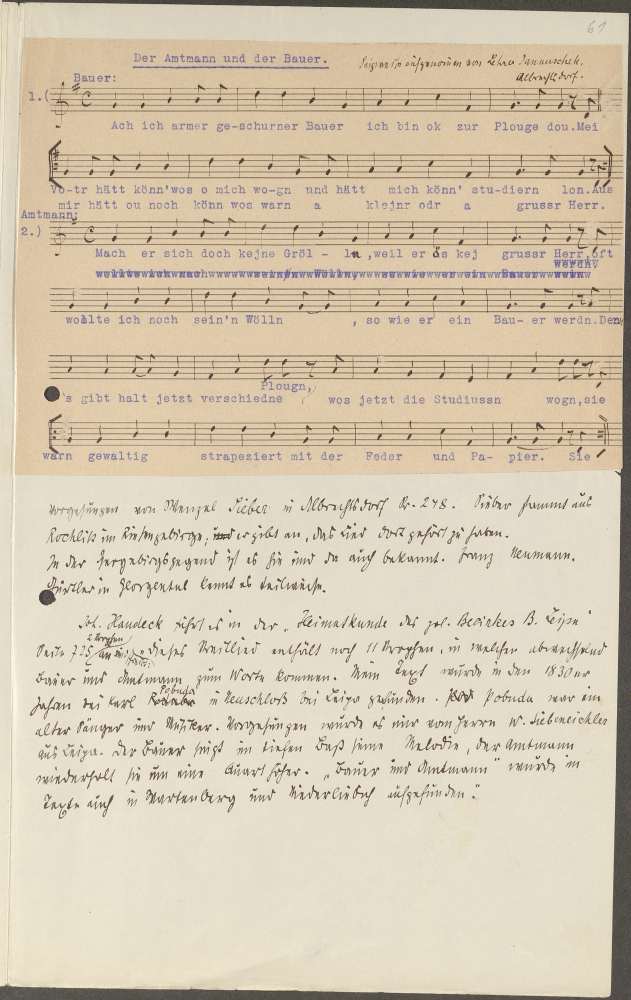 61
Der Amtmann und der Bauer.
aufgenommen von Lehrer Januschek.
Albrechtsdorf.
Bauer:
1.(
Ach ich armer ge-schurner Bauer ich bin ok zur Plouge dou.Mei
Vo-tr hätt könn'wos o mich wo-gn und hätt mich könn' stu-diern lon.Aus
mir hätt ou noch könn wos warn a klejnr odr a grussr Herr.
Amtmann:
2.)
Mach er sich doch kejne Gröl - ln,weil er ös kej grussr Herr,öft
werdnv
wollte ich noch sein'n Wölln , so wie er ein Bau- er werdn.Denn
Plougn,
's gibt halt jetzt verschiedne wos jetzt die Studiussn wogn,sie
warn gewaltig strapeziert mit der Feder und Pa- pier. Sie
Vorgesungen von Wenzel Sieber in Albrechtsdorf Nr. 278. Sieber stammt aus
Rochlitz im Riesengebirge; und er gibt an, das Lied dort gehört zu haben.
In der Isergebirgsgegend ist es hie und da auch bekannt. Franz Neumann.
Gürtler in Georgental kennt es teilweise.
Joh. Haudeck führt es in der „Heimatkunde des pol. Bezirkes B. Leipa"
Seite 725 an: „Dieses Streitlied enthält noch 11 Strophen, in welchen abwechselnd
Bauer und Amtmann zum Worte kommen. Mein Text wurde in den 1830er
Jahren bei Karl Pobuda in Neuschloß bei Leipa gefunden. Pobuda war ein
alter Sänger und Musiker. Vorgesungen wurde es mir von Herrn W. Siebeneichler
aus Leipa. Der Bauer singt in tiefem Baß seine Melodie, der Amtmann
wiederholt sie um eine Quart höher. „Bauer und Amtmann" wurde im
Texte auch in Wartenberg und Niederliebich aufgefunden."